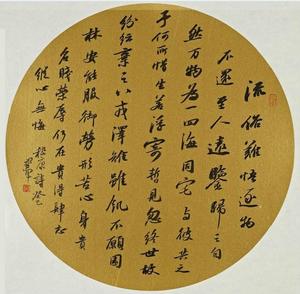 流俗難悟逐物
不還至人遠鑒歸之自
然万物為一四海同宅与彼共之
予何所惜生若浮寄暫見忽終世故
紛紜棄之八戎澤雉雖飢不願園
林安能服御勞形苦心身貴
名賤榮辱何在貴得肆志
縱心無悔 嵇康詩癸巳